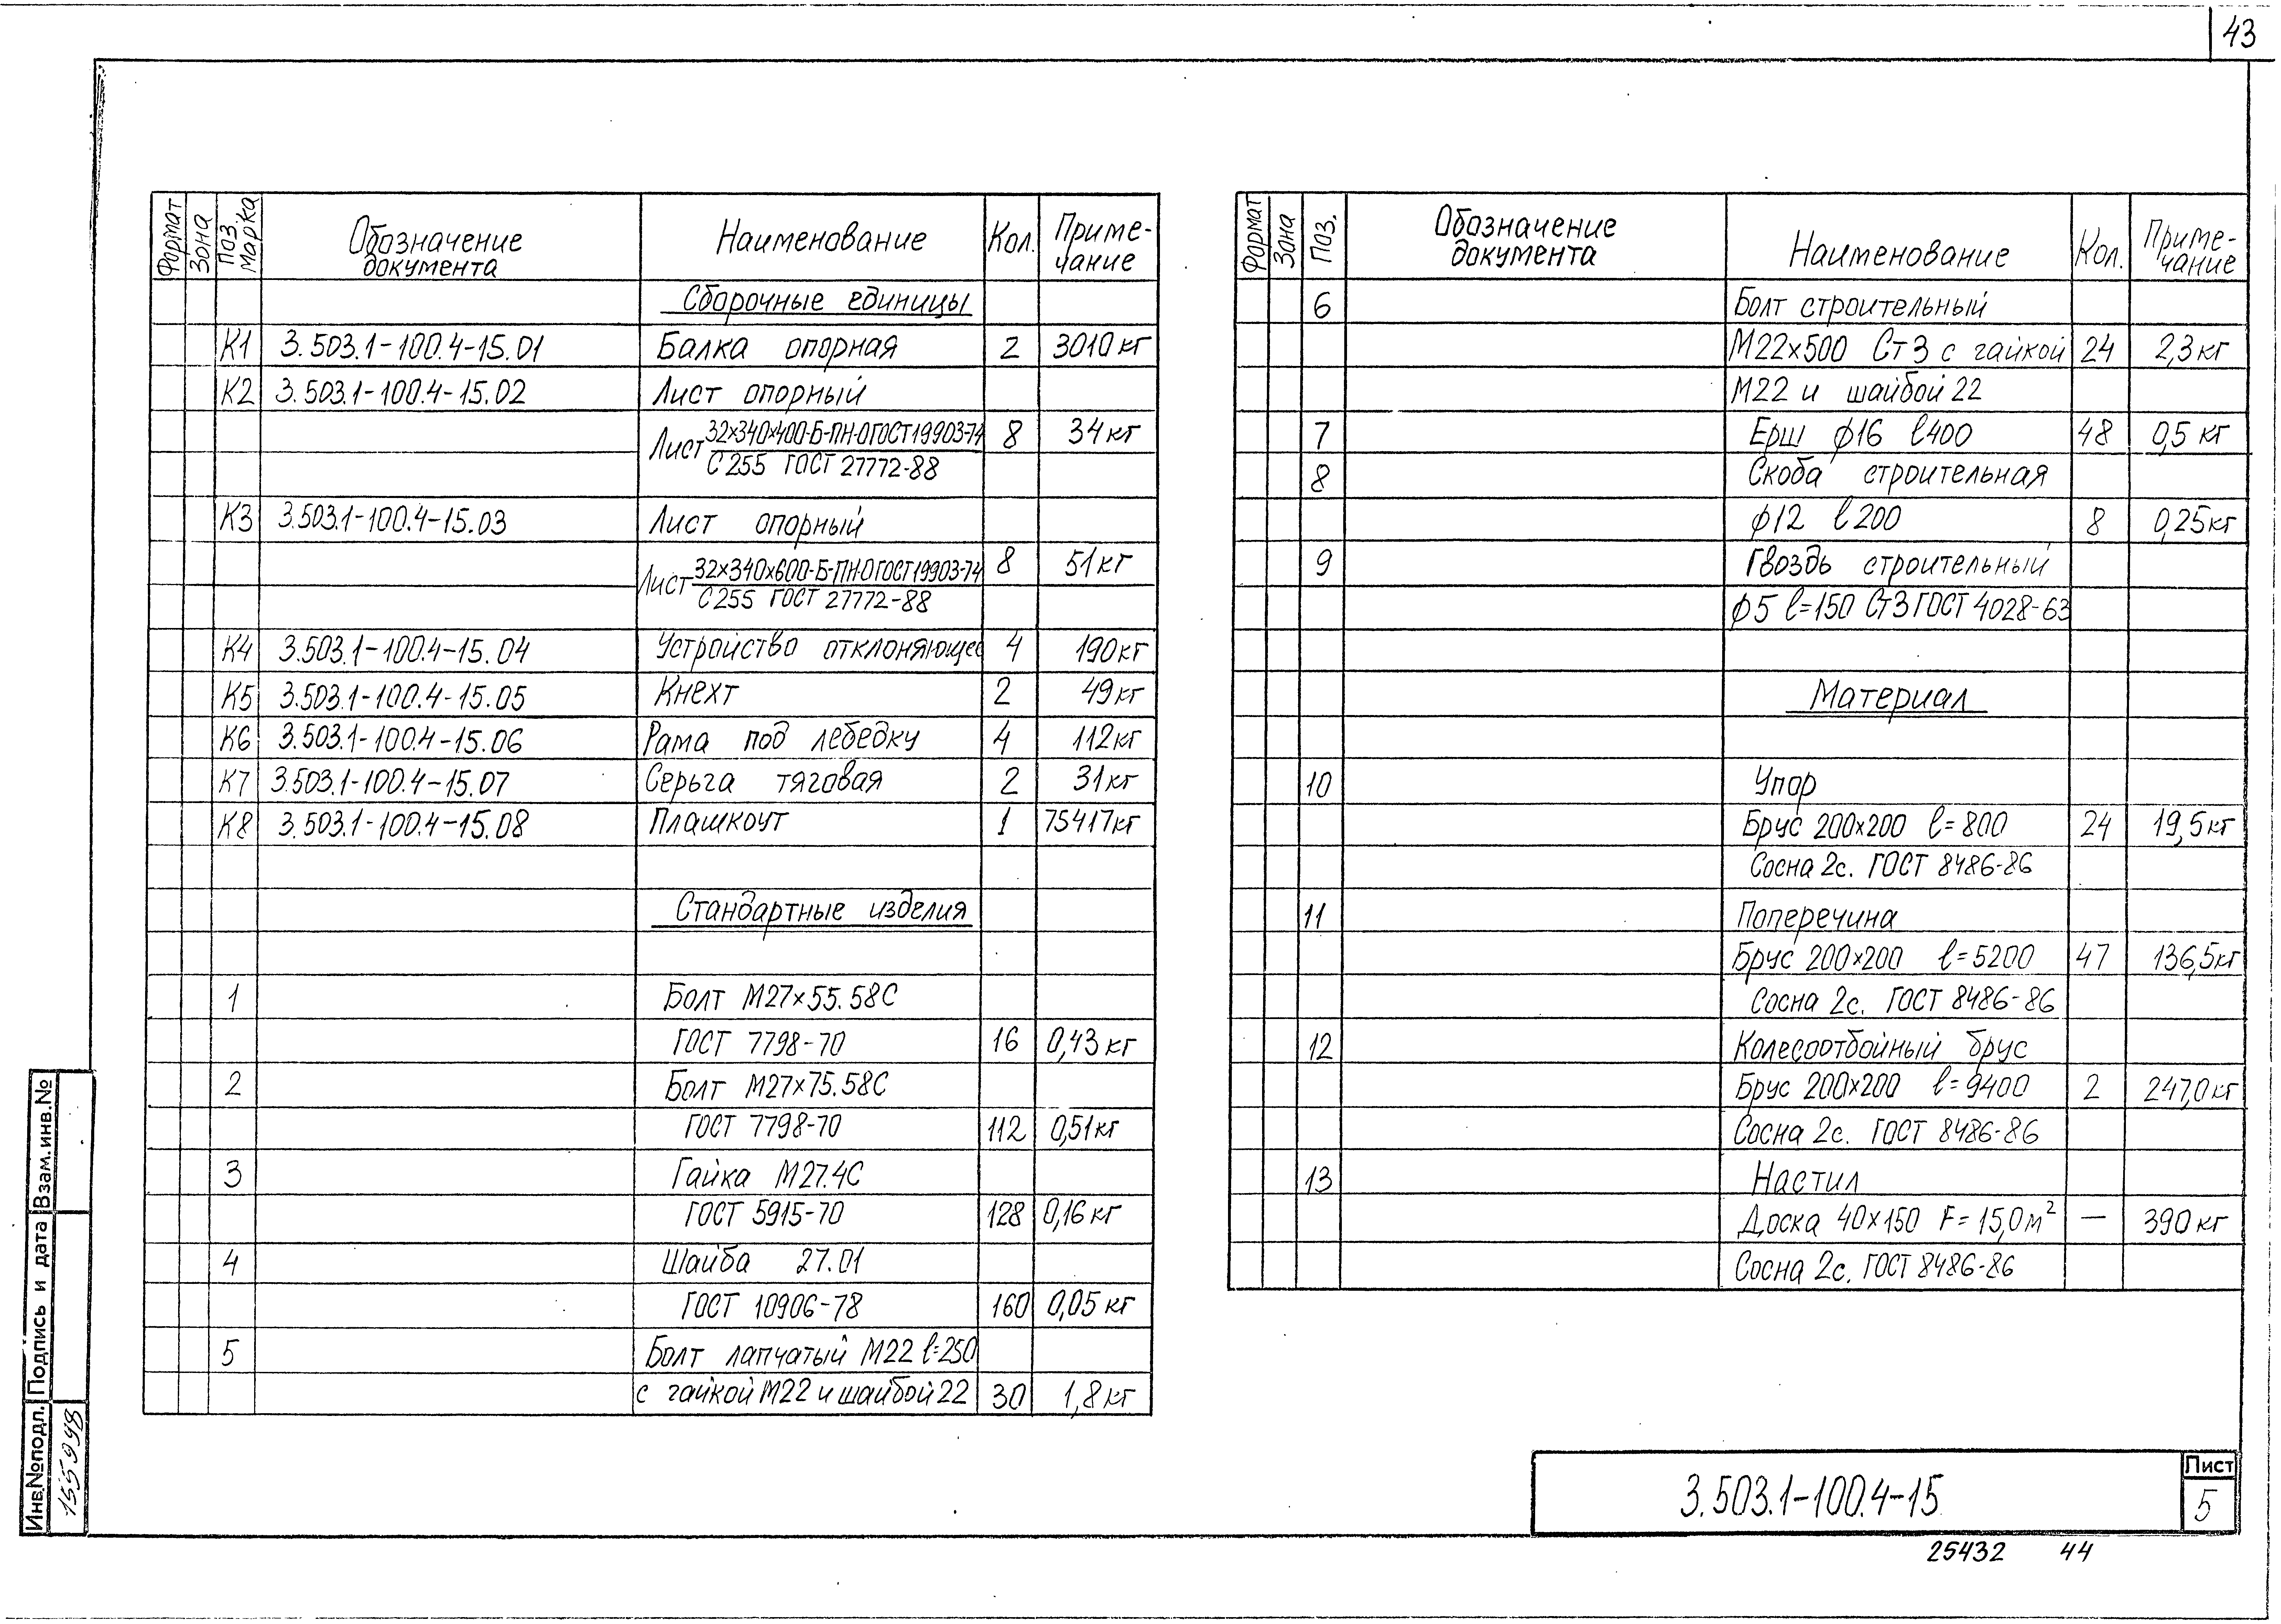 43
Формат
Зона
Поз. Марка
Обозначение документа
Наименование
Кол.
Приме-чание
Сборочные единицы
К1 3.503.1-100.4-15.01 Балка опорная 2 3010кг
К2 3.503.1-100.4-15.02 Лист опорный
Лист 32х340х400-Б-ПН-О ГОСТ 19903-74 8 34кг
С255 ГОСТ 27772-88
К3 3.503.1-100.4-15.03 Лист опорный
Лист 32х340х600-Б-ПН-О ГОСТ 19903-74 8 51кг
С255 ГОСТ 27772-88
К4 3.503.1-100.4-15.04 Устройство отклоняющее 4 190кг
К5 3.503.1-100.4-15.05 Кнехт 2 49кг
К6 3.503.1-100.4-15.06 Рама под лебедку 4 112кг
К7 3.503.1-100.4-15.07 Серьга тяговая 2 31кг
К8 3.503.1-100.4-15.08 Плашкоут 1 75417кг
Стандартные изделия
1 Болт М27х55.58С
ГОСТ 7798-70 16 0,43кг
2 Болт М27х75.58С
ГОСТ 7798-70 112 0,51кг
3 Гайка М27.4С
ГОСТ 5915-70 128 0,16кг
4 Шайба 27.01
ГОСТ 10906-78 160 0,05кг
5 Болт лапчатый М22 ℓ=250
с гайкой М22 и шайбой 22 30 1,8кг
Формат
Зона
Поз.
Обозначение документа
Наименование
Кол.
Приме-чание
6 Болт строительный
М22х500 Ст3 с гайкой 24 2,3кг
М22 и шайбой 22
7 Ерш ф16 ℓ400 48 0,5кг
8 Скоба строительная
ф12 ℓ200 8 0,25кг
9 Гвоздь строительный
ф5 ℓ=150 Ст3 ГОСТ 4028-63
Материал
10 Упор
Брус 200х200 ℓ=800 24 19,5кг
Сосна 2с. ГОСТ 8486-86
11 Поперечина
Брус 200х200 ℓ=5200 47 136,5кг
Сосна 2с. ГОСТ 8486-86
12 Колесоотбойный брус
Брус 200х200 ℓ=9400 2 247,0кг
Сосна 2с. ГОСТ 8486-86
13 Настил
Доска 40х150 F=15,0м² — 390кг
Сосна 2с. ГОСТ 8486-86
Инв.№подл. Подпись и дата Взам.инв.№
155998
3.503.1-100.4-15
Лист
5
25432 44